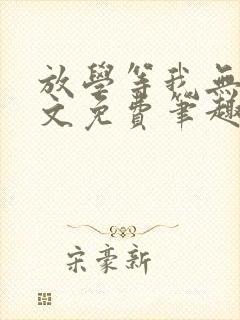 放學等我無
文免費筆趣
宋豪新